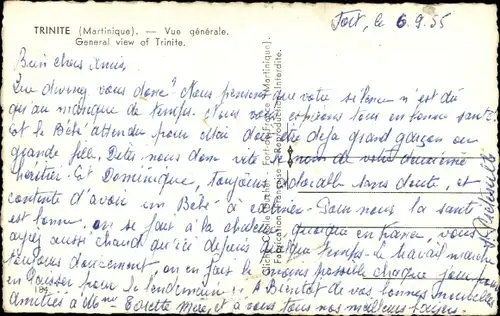 TRINITE (Martinique). — Vue générale.
General view of Trinite.
Fort, le 6.9.55
Bien chers Amis,
Que devenez vous donc? Nous pensons que votre silence n'est dû
qu'au manque de temps. Nous vous espérons tous en bonne santé.
Et le Bébé attendu pour Mai doit être déjà grand garçon ou
grande fille. Dites nous donc vite le nom de votre deuxième
héritier. Et Dominique, toujours adorable sans doute, et
contente d'avoir un Bébé à câliner. Pour nous la santé
est bonne, on se fait à la chaleur, quoique en France, vous
ayez aussi chaud qu'ici depuis quelque temps. Le travail marche
toujours doucement, on en fait le moins possible chaque jour pour
en laisser pour le lendemain!! A Bientôt de vos bonnes nouvelles
Amitiés à Mme Colette Mère, et à vous tous nos meilleurs baisers.
184
(Martinique)
Reproduction Interdite.